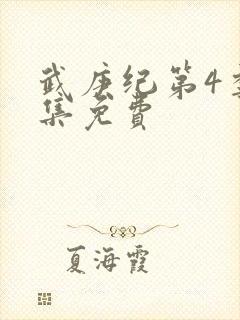 武庚纪第4
集免费
夏海霞